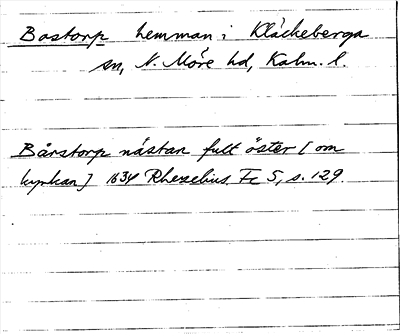 Bostorp hemman i Kläckeberga
sn, N. Möre hd, Kalm. l.
Bårstorp nästan fult öster [om
kyrkan] 1634 Rhezelius Fc 5, s. 129.